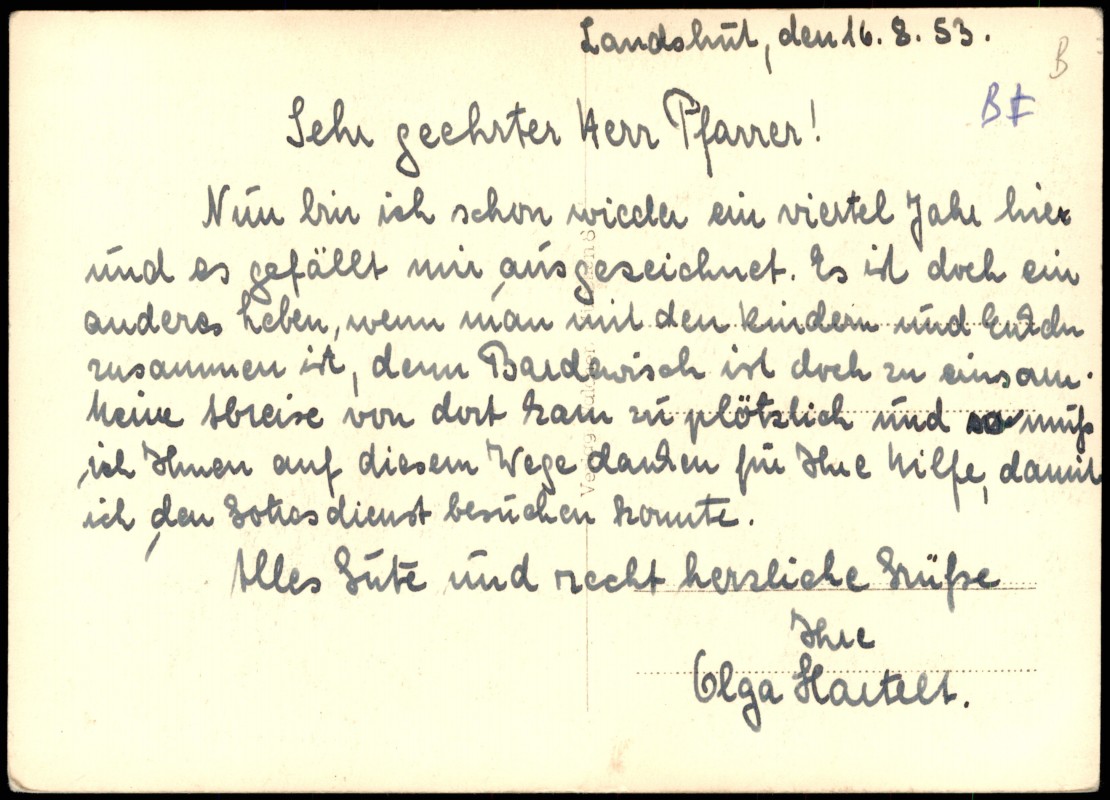 Landshut, den 16. 8. 53.
B
B
Sehr geehrter Herr Pfarrer!
Nun bin ich schon wieder ein viertel Jahr hier
und es gefällt mir ausgezeichnet. Es ist doch ein
anderes Leben, wenn man mit den Kindern und Enkeln
zusammen ist, denn Bardewisch ist doch zu einsam.
Meine Abreise von dort kam zu plötzlich und so muß
ich Ihnen auf diesem Wege danken für Ihre Hilfe, damit
ich den Gottesdienst besuchen konnte.
Alles Gute und recht herzliche Grüße
Ihre
Olga